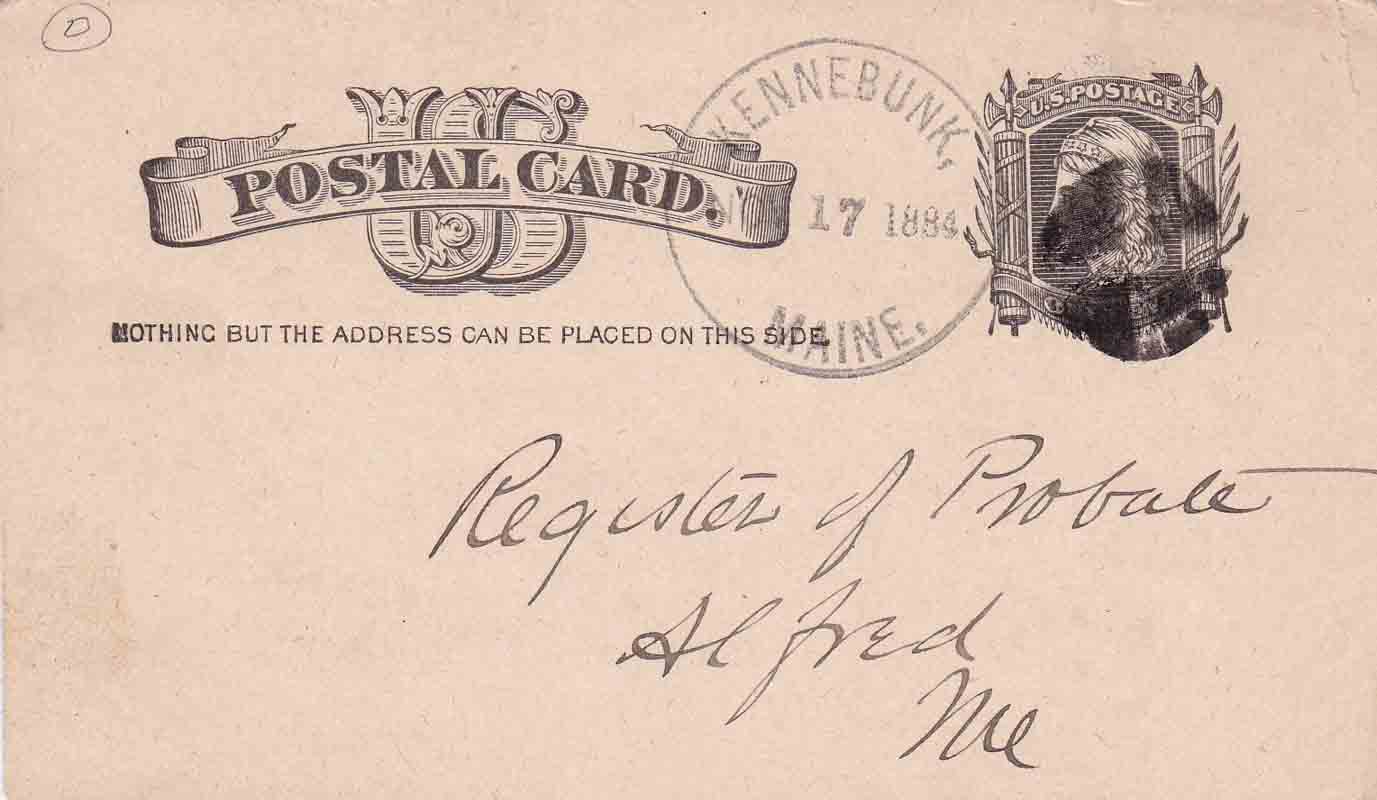 D
US
POSTAL CARD.
NOTHING BUT THE ADDRESS CAN BE PLACED ON THIS SIDE.
KENNEBUNK,
17 1884
MAINE.
U.S. POSTAGE
Register of Probate
Alfred
Me